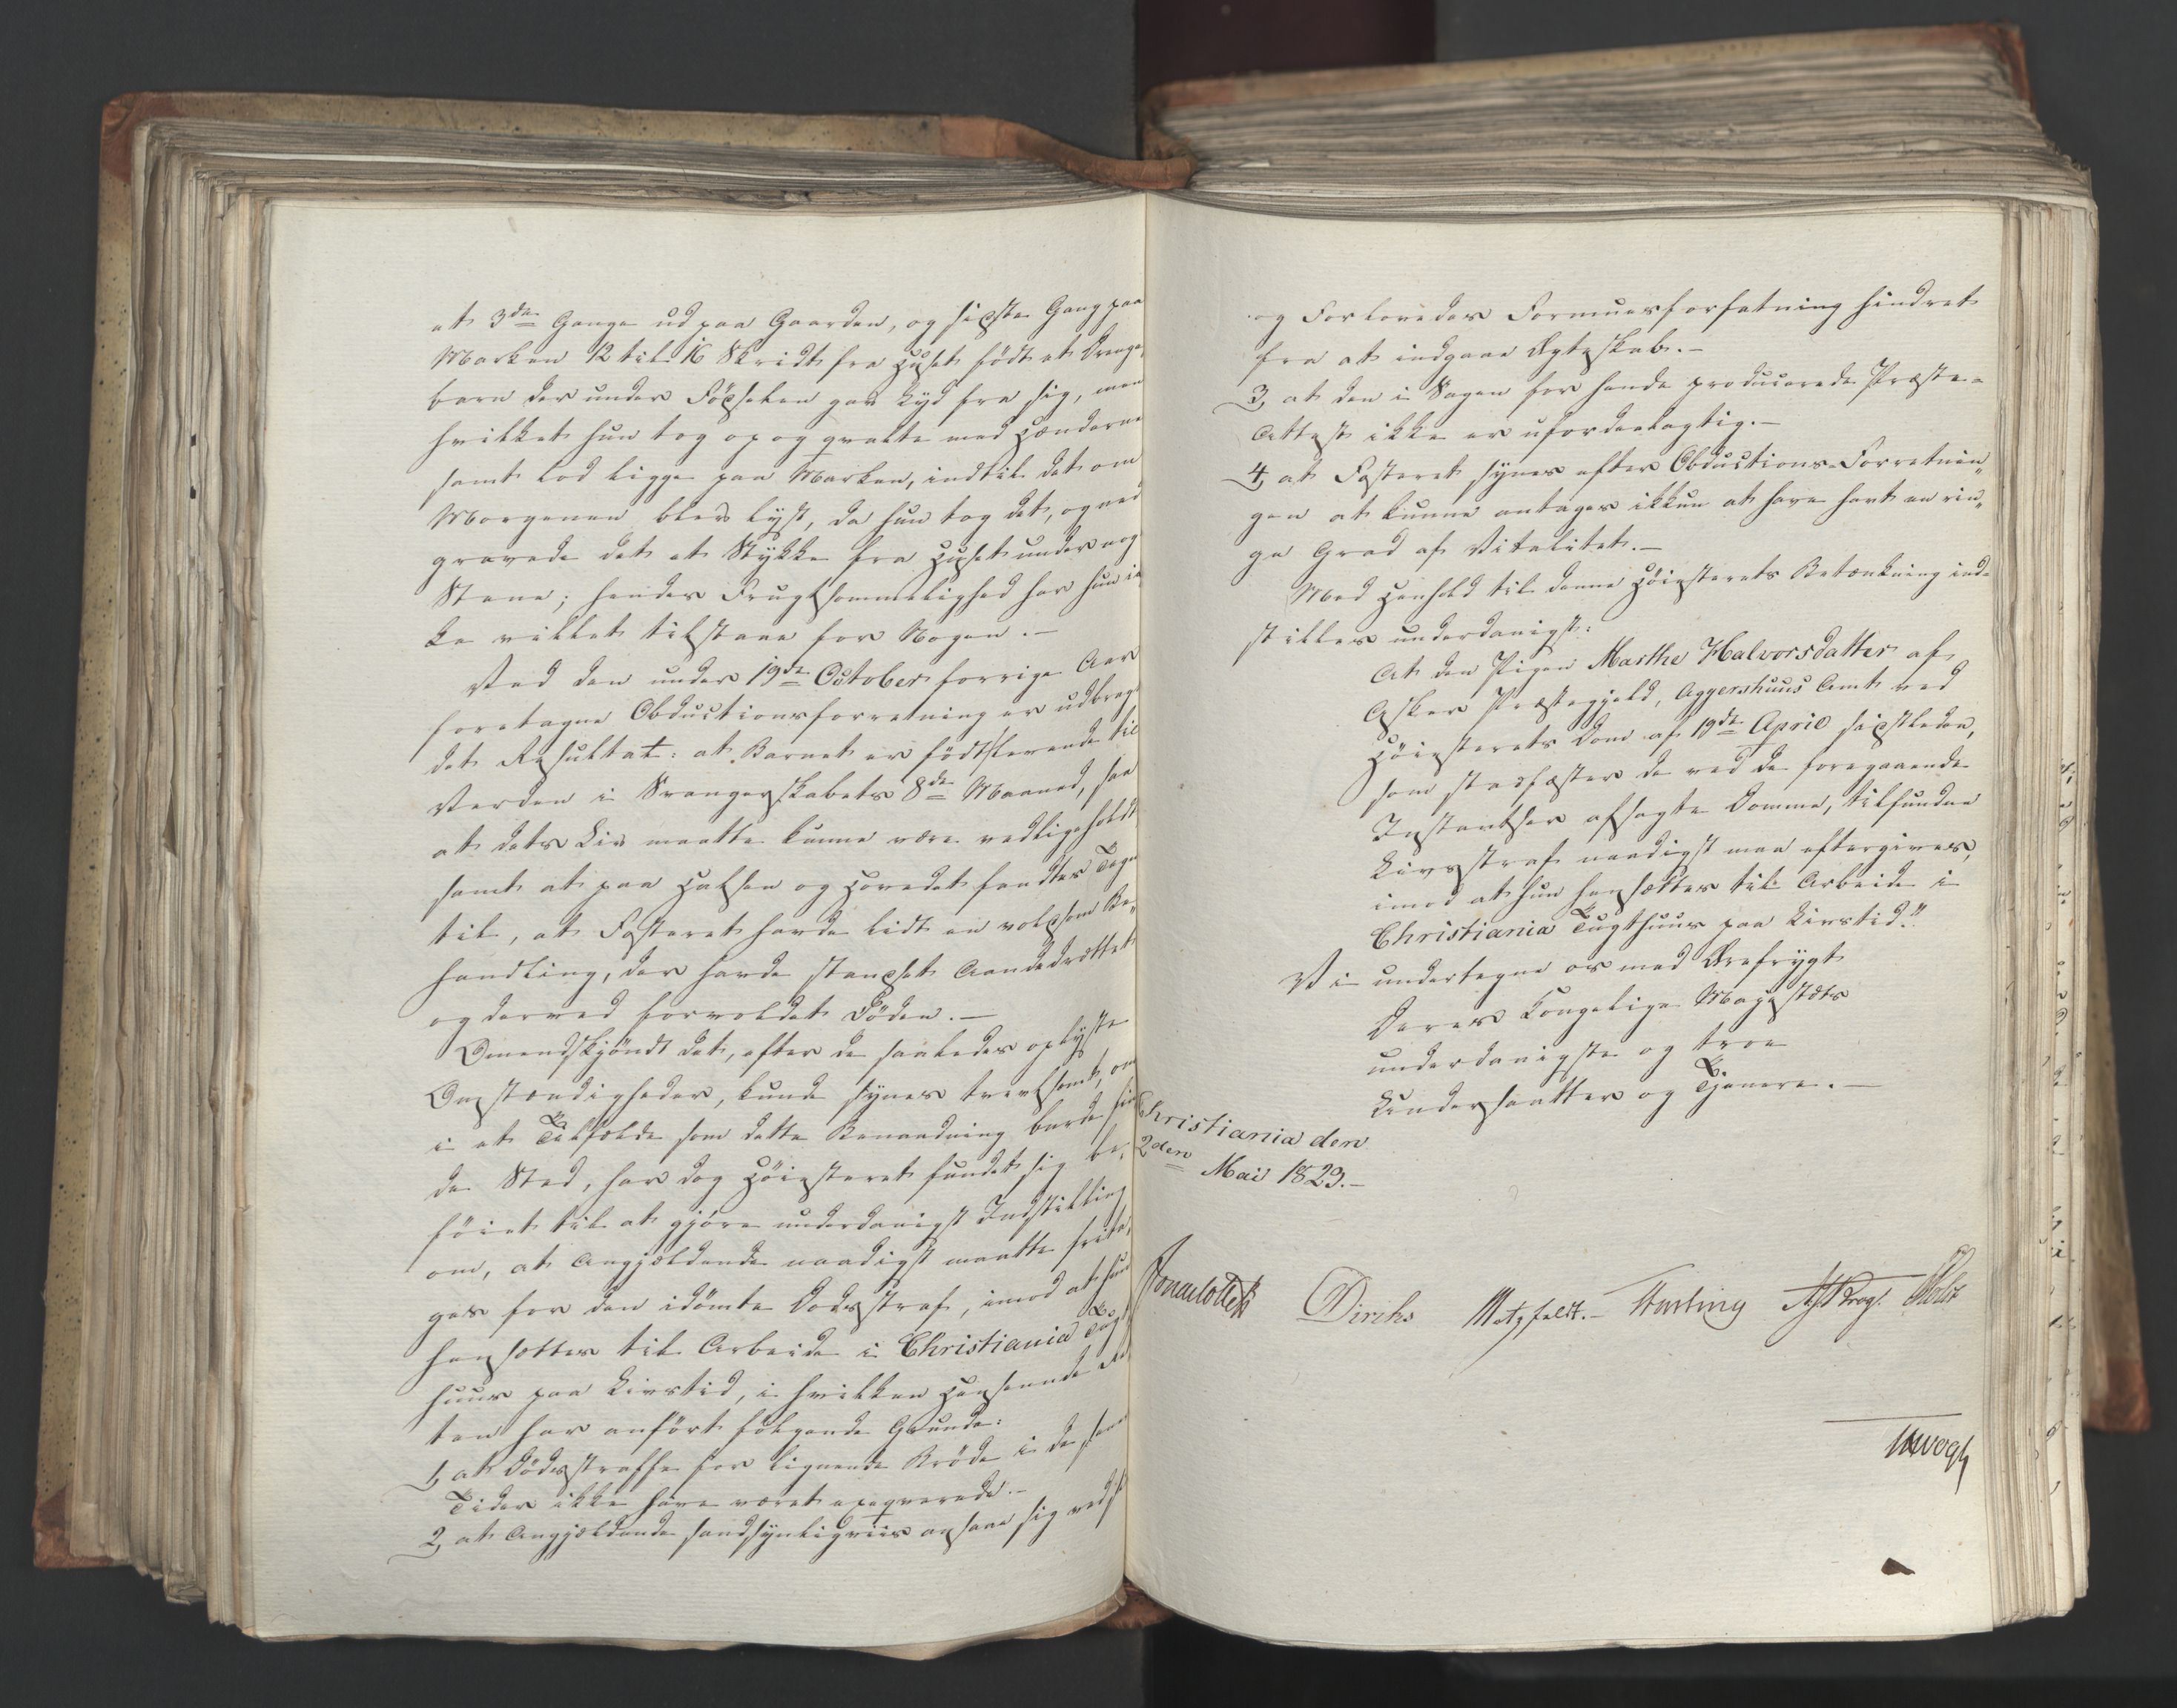 at 3de Gange ud paa Gaarden, og sidste Gang paa
Marken 12 til 16 Skridt fra Huset født et Drenge-
barn der under Fødselen gav Lyd fra sig, men
hvilket hun tog op og qvalte med Hænderne
samt lod ligge paa Marken, indtil det om
Morgenen blev lyst, da hun tog det, og ned
gravede det et Stykke fra Huset under nog
Stene; hendes Frugtsommelighed har hun ik
ke villet tilstaae for Nogen.-
Ved den under 19de October forrige Aar
foretagne Obductionsforretning er udbragt
det Resultat: at Barnet er født levende til
Verden i Svangerskabets 8de Maaned, saa
at dets Liv maatte kunne være vedligeholdt
samt at paa Halsen og Hovedet fandtes Tegn
til, at Fosteret havde lidt en voldsom Be„
handling, der havde standset Aandedrættet
og derved forvoldet Døden.-
Omendskjøndt det, efter de saaledes oplyste
Omstændigheder, kunde synes tvivlsomt, om
i et Tilfælde som dette Benaadning burde fin
de Sted, har dog Høiesteret fundet sig be„
føiet til at gjøre underdanigst Indstilling
om, at Angjældende naadigst maatte frita„
ges for den idømte Dødsstraf, imod at hun
hensættes til Arbeide i Christiania Tugt
huus paa Livstid, i hvilken Henseende Ret
ten har anført følgende Grunde:
1, at Dødsstraffe for lignende Brøde i de sen
Tider ikke have været exeqverede.-
2, at Angjældende sandsynligviis ansaae sig ved
og Forlovedes Formuesforfatning hindret
fra at indgaae Ægteskab.-
3, at den i Sagen for hende producerede Præste-
Attest ikke er ufordeelagtig.-
4, at Fosteret synes efter Obductions-Forretnin„
gen at kunne antages ikkun at have havt en rin„
ge Grad af Vitalitet.-
Med Henhold til denne Høiesterets Betænkning ind-
stilles underdanigst:
At den Pigen Marthe Halvorsdatter af
Asker Præstegjeld, Aggershuus Amt ved
Høiesterets Dom af 19de April sidstleden,
som stadfæster de ved de foregaaende
Instantser afsagte Domme, tilfundne
Livsstraf naadigst maa eftergives,
imod at hun hensættes til Arbeide i
Christiania Tugthuus paa Livstid."
Vi undertegne os med Ærefrygt
Deres Kongelige Majestæts
underdanigste og troe
Undersaatter og Tjenere.-
Christiania den
2den Mai 1829.-
Diriks Motzfeldt.- Fasting Krog. Holst
Vogt